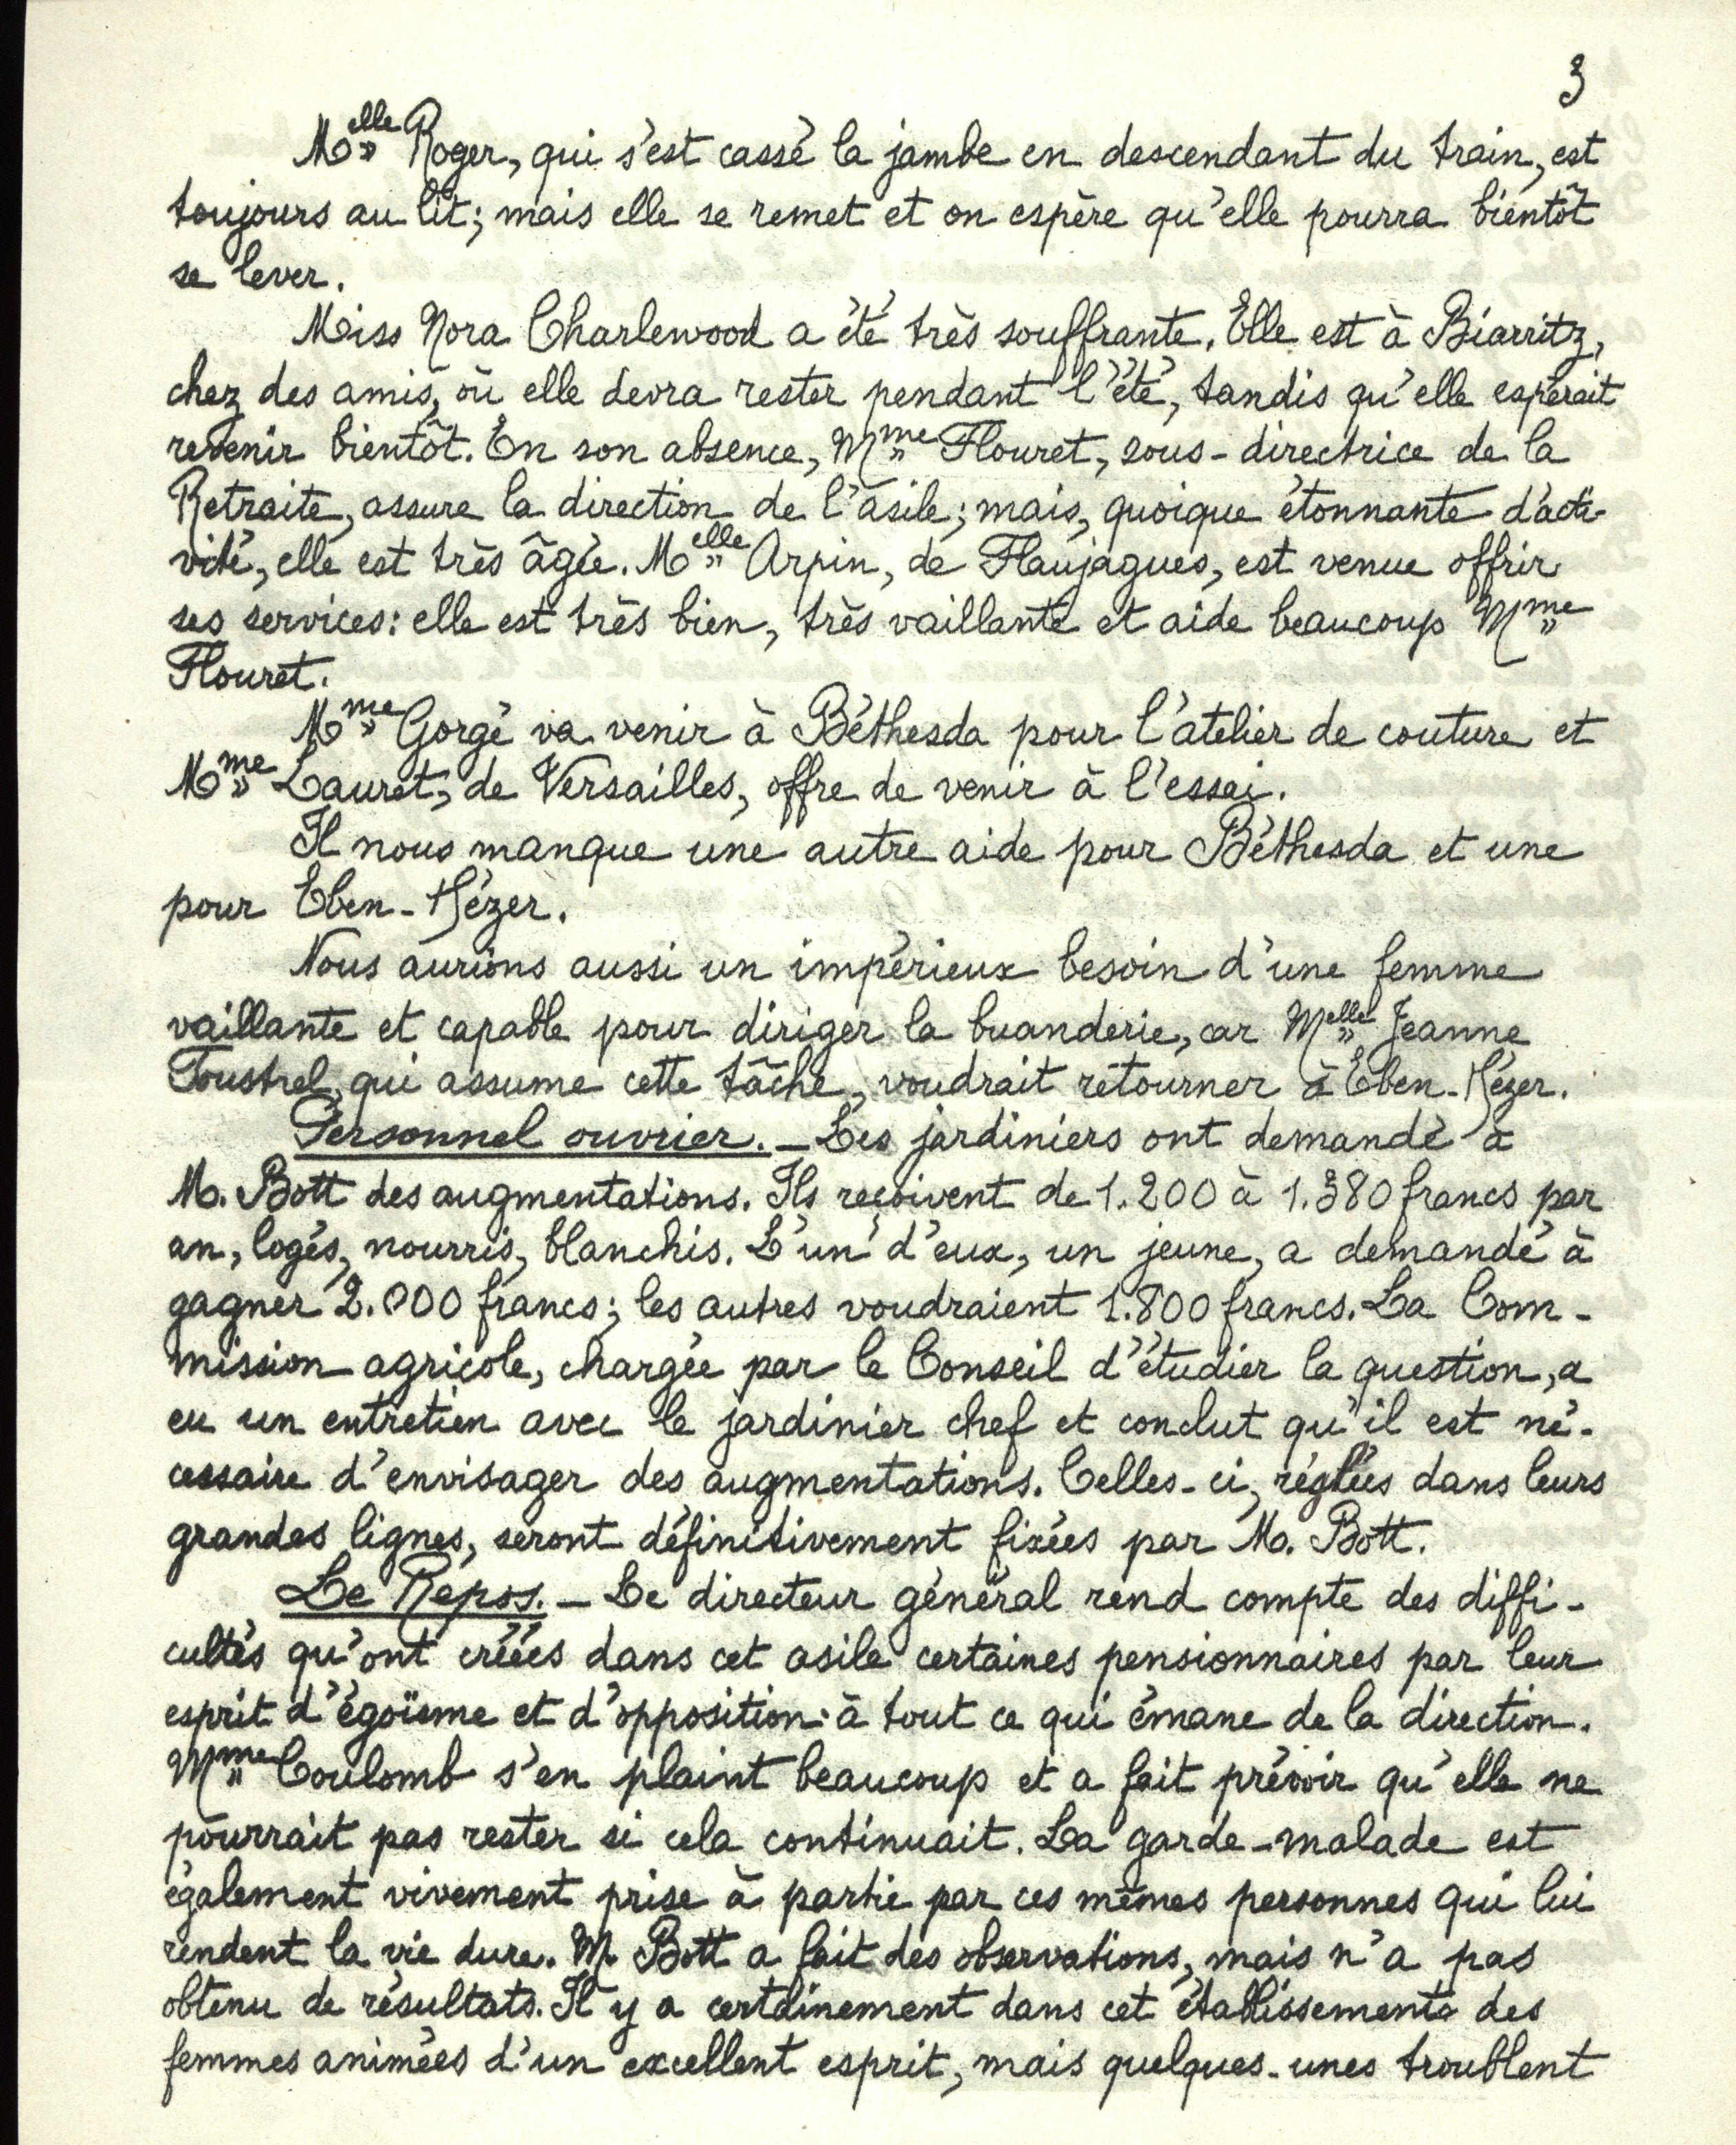 3
Melle Roger, qui s'est cassé la jambe en descendant du train, est
toujours au lit; mais elle se remet et on espère qu'elle pourra bientôt
se lever.
Miss Nora Charlewood a été très souffrante. Elle est à Biarritz,
chez des amis, où elle devra rester pendant l'été, tandis qu'elle espérait
revenir bientôt. En son absence, Mme Flouret, sous-directrice de la
Retraite, assure la direction de l'asile; mais, quoique étonnante d'acti-
vité, elle est très âgée. Melle Arpin, de Flaujagues, est venue offrir
ses services: elle est très bien, très vaillante et aide beaucoup Mme
Flouret.
Mme Gorgé va venir à Béthesda pour l'atelier de couture et
Mme Lauret, de Versailles, offre de venir à l'essai.
Il nous manque une autre aide pour Béthesda et une
pour Eben-Hézer.
Nous aurions aussi un impérieux besoin d'une femme
vaillante et capable pour diriger la buanderie, car Melle Jeanne
Toustrel, qui assume cette tâche, voudrait retourner à Eben-Hézer.
Personnel ouvrier. _ Les jardiniers ont demandé à
M. Bott des augmentations. Ils reçoivent de 1.200 à 1.380 francs par
an, logés, nourris, blanchis. L'un d'eux, un jeune, a demandé à
gagner 2.000 francs; les autres voudraient 1.800 francs. La Com-
mission agricole, chargée par le Conseil d'étudier la question, a
eu un entretien avec le jardinier chef et conclut qu'il est né-
cessaire d'envisager des augmentations. Celles-ci, réglées dans leurs
grandes lignes, seront définitivement fixées par M. Bott.
Le Repos. _ Le directeur général rend compte des diffi-
cultés qu'ont créées dans cet asile certaines pensionnaires par leur
esprit d'égoïsme et d'opposition à tout ce qui émane de la direction.
Mme Coulomb s'en plaint beaucoup et a fait prévoir qu'elle ne
pourrait pas rester si cela continuait. La garde-malade est
également vivement prise à partie par ces mêmes personnes qui lui
rendent la vie dure. M. Bott a fait des observations, mais n'a pas
obtenu de résultats. Il y a certainement dans cet établissement des
femmes animées d'un excellent esprit, mais quelques-unes troublent